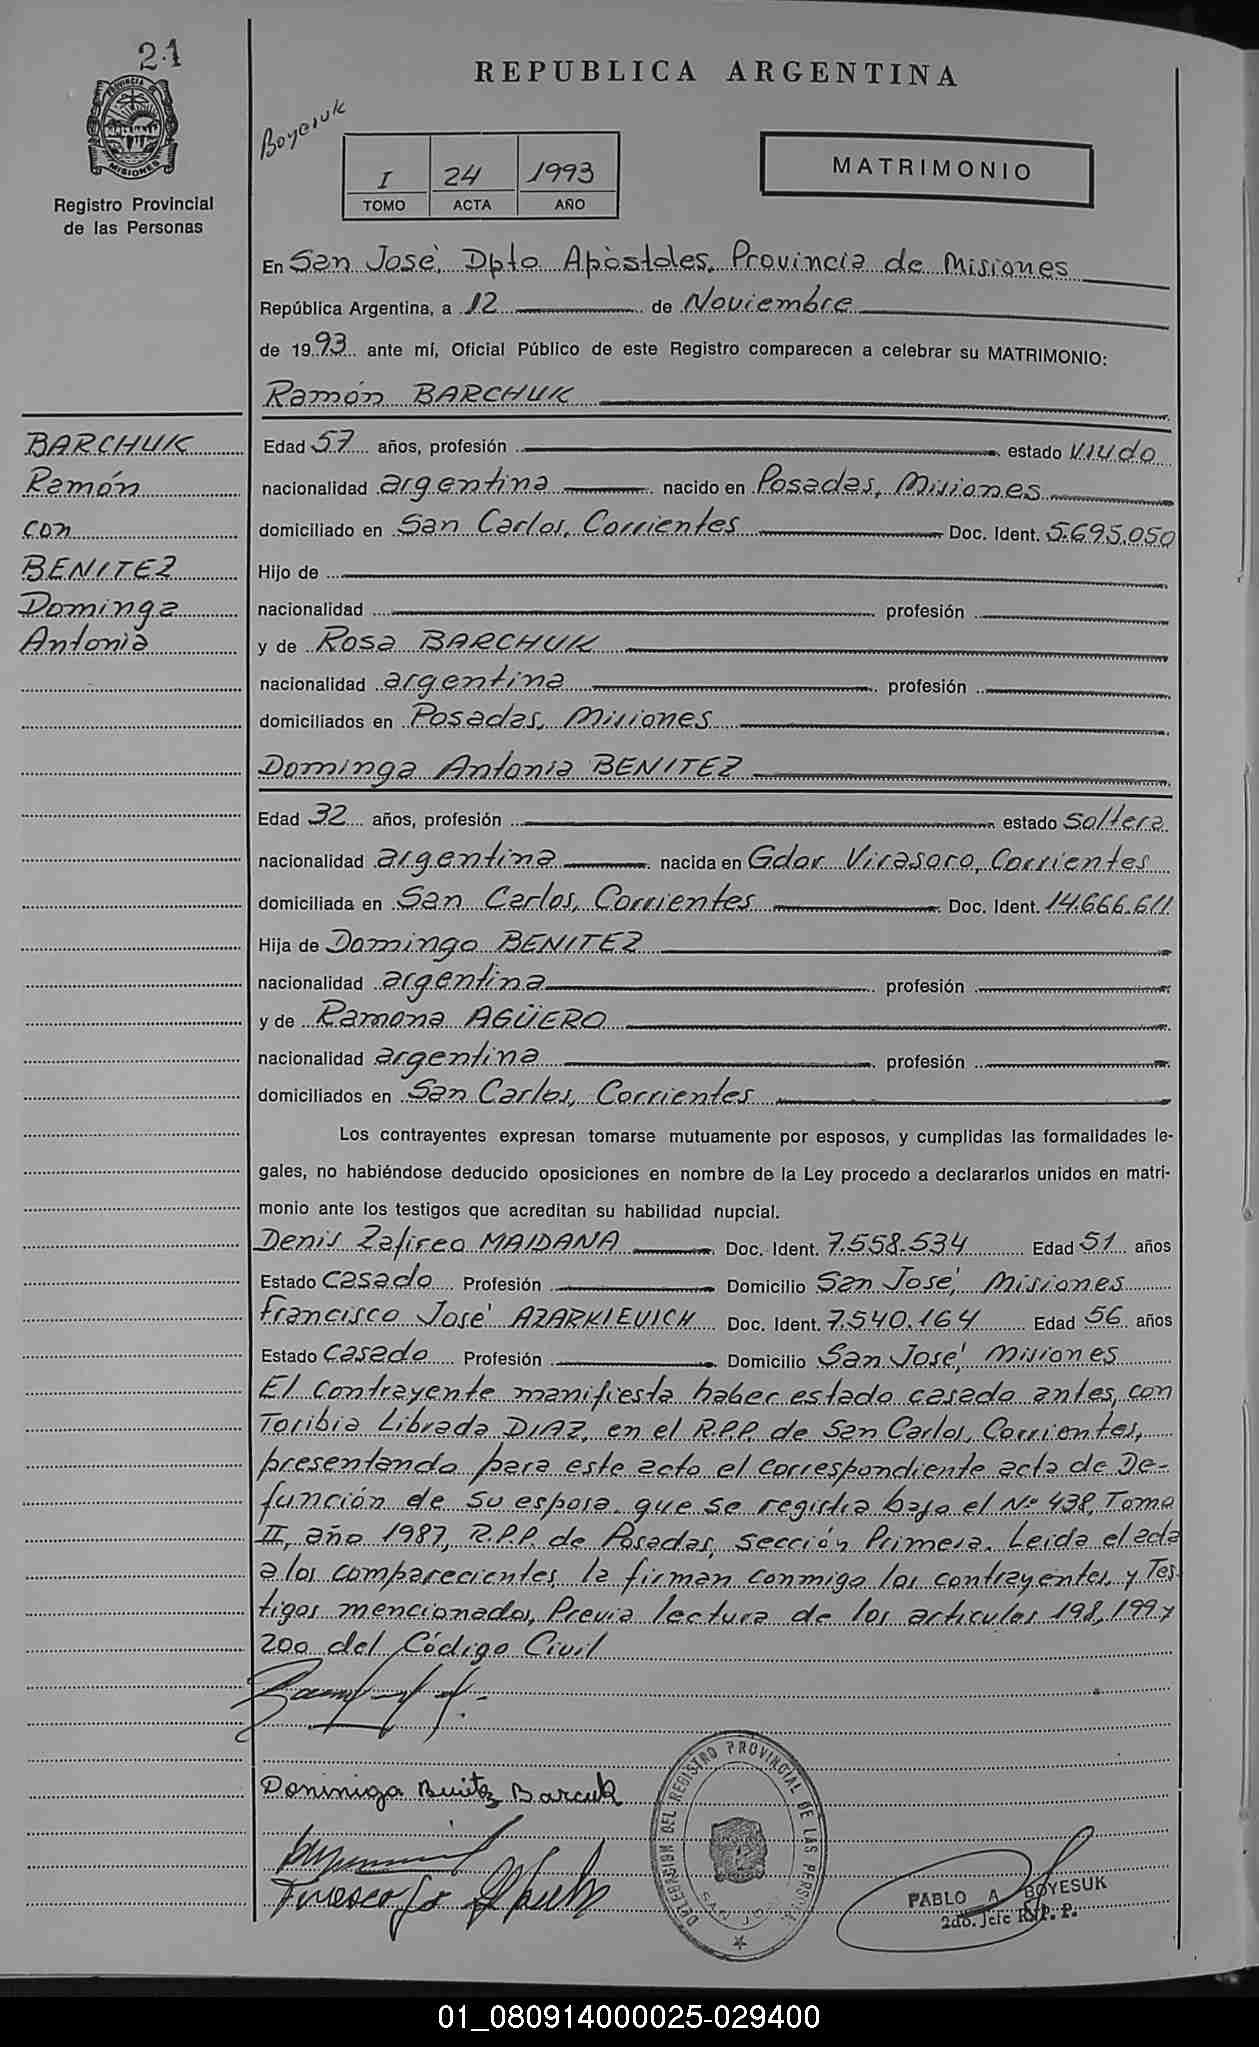 21
PROVINCIA DE
MISIONES
Registro Provincial
de las Personas
REPUBLICA ARGENTINA
Boyesuk
I 24 1993
TOMO ACTA AÑO
MATRIMONIO
En San José, Dpto Apóstoles, Provincia de Misiones
República Argentina, a 12 de Noviembre
de 1993 ante mí, Oficial Público de este Registro comparecen a celebrar su MATRIMONIO:
Ramón BARCHUK
BARCHUK
Ramón
con
BENITEZ
Dominga
Antonia
Edad 57 años, profesión estado viudo
nacionalidad argentina nacido en Posadas, Misiones
domiciliado en San Carlos, Corrientes Doc. Ident. 5.695.050
Hijo de
nacionalidad profesión
y de Rosa BARCHUK
nacionalidad argentina profesión
domiciliados en Posadas, Misiones
Dominga Antonia BENITEZ
Edad 32 años, profesión estado soltera
nacionalidad argentina nacida en Gdor Virasoro, Corrientes
domiciliada en San Carlos, Corrientes Doc. Ident. 14.666.611
Hija de Domingo BENITEZ
nacionalidad argentina profesión
y de Ramona AGÜERO
nacionalidad argentina profesión
domiciliados en San Carlos, Corrientes
Los contrayentes expresan tomarse mutuamente por esposos, y cumplidas las formalidades le-
gales, no habiéndose deducido oposiciones en nombre de la Ley procedo a declararlos unidos en matri-
monio ante los testigos que acreditan su habilidad nupcial.
Denis Zafireo MAIDANA Doc. Ident. 7.558.534 Edad 51 años
Estado casado Profesión Domicilio San José, Misiones
Francisco José AZARKIEVICH Doc. Ident. 7.540.164 Edad 56 años
Estado casado Profesión Domicilio San José, Misiones
El contrayente manifiesta haber estado casado antes, con
Toribia Librada DIAZ, en el R.P.P. de San Carlos, Corrientes,
presentando para este acto el correspondiente acta de De-
función de su esposa. que se registra bajo el Nº 438, Tomo
II, año 1987, R.P.P. de Posadas, sección Primera. Leida el acta
a los comparecientes, la firman conmigo los contrayentes y Tes
tigos mencionados, Previa lectura de los articulos 198, 199 y
200 del Código Civil
Dominiga Benitez Barcuk
DELEGACION DEL REGISTRO PROVINCIAL DE LAS PERSONAS
SAN JOSE
PABLO A. BOYESUK
2do. Jefe R. P. P.
01_080914000025-029400